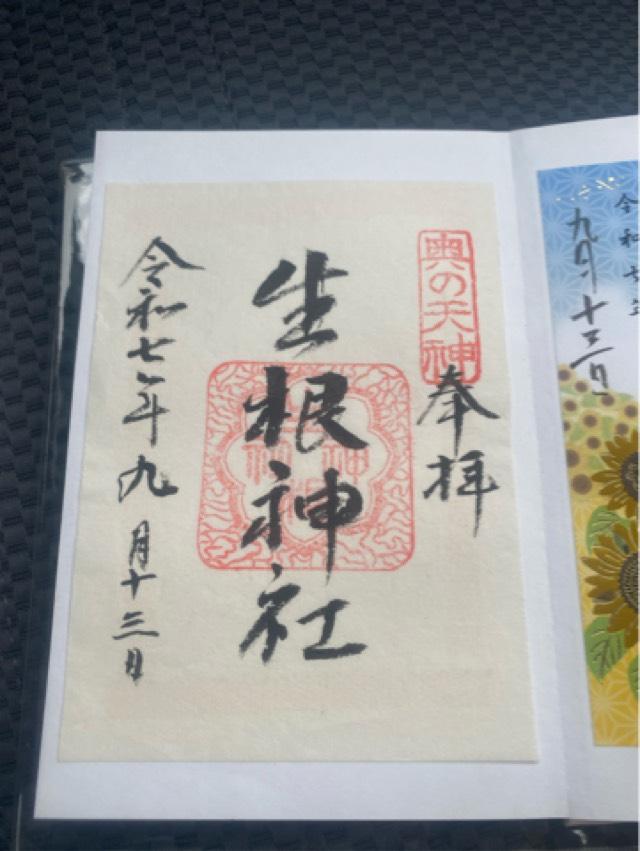 奥の天神
奉拝
生根神社
令和七年九月十三日
令和七年
九月十三日